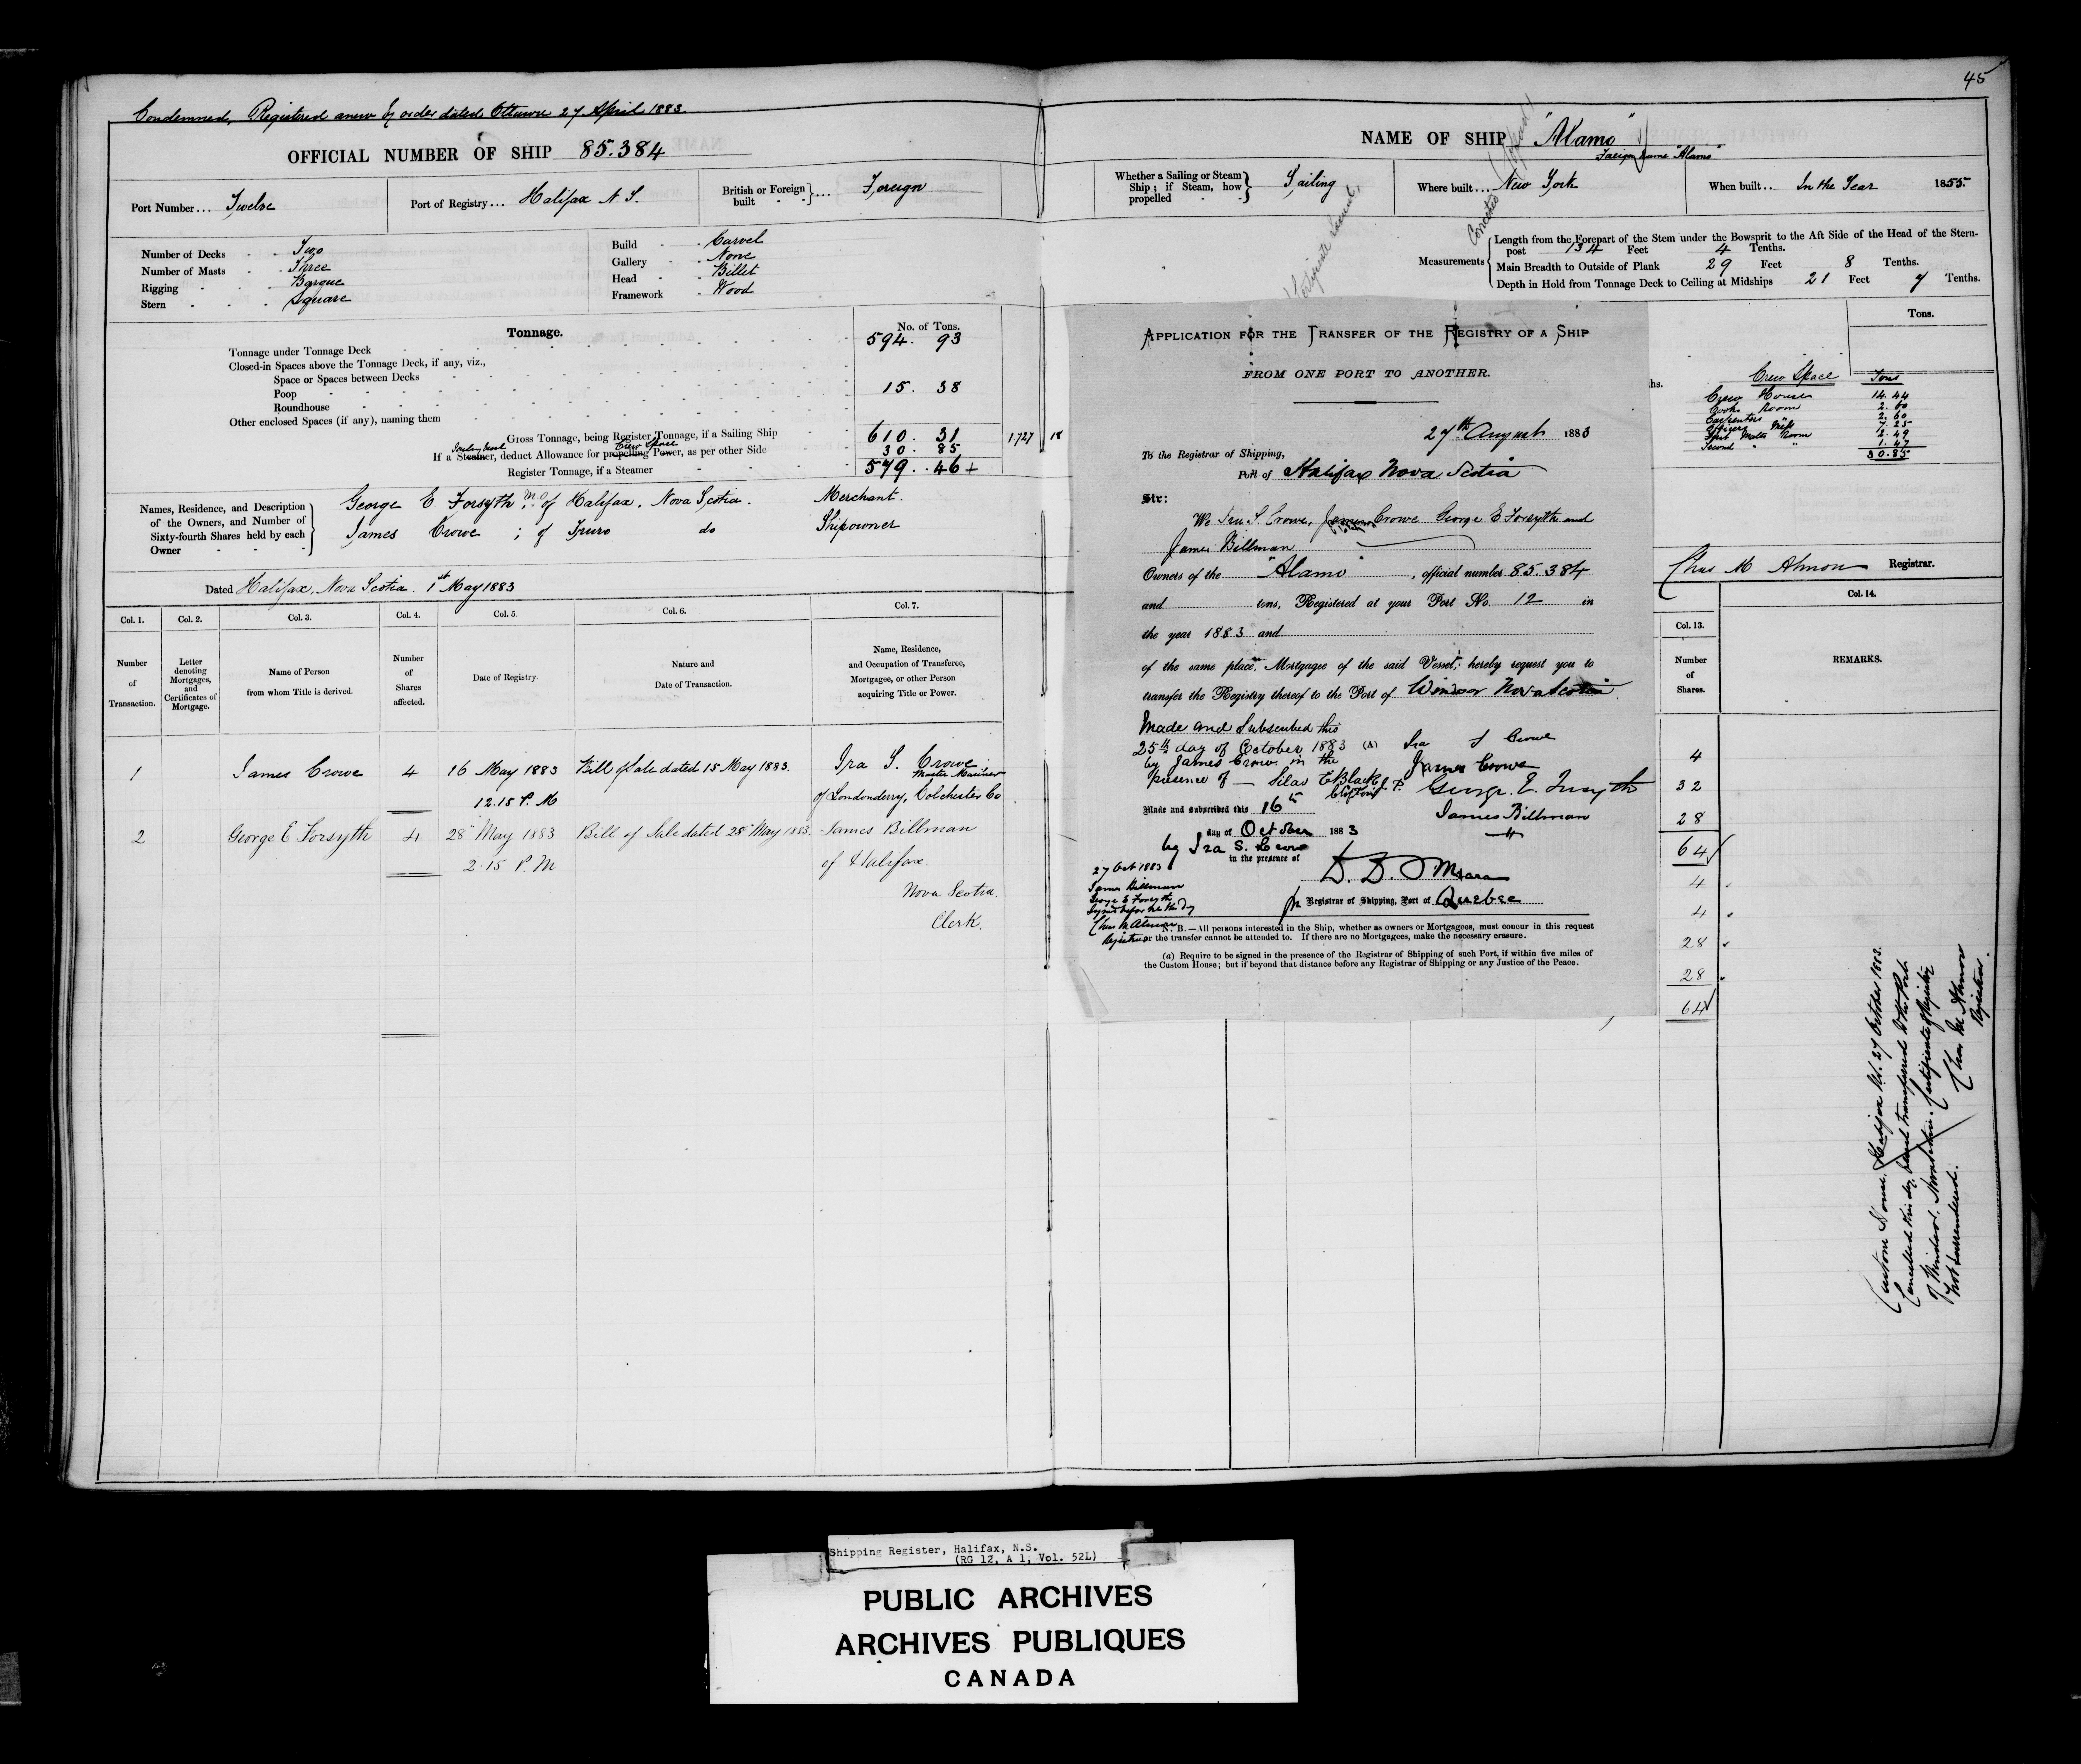 45
Condemned, Registered anew by order dated Ottawa 27 April 1883.
OFFICIAL NUMBER OF SHIP 85.384
NAME OF SHIP "Alamo"
Foreign name "Alamo"
Port Number... Twelve
Port of Registry... Halifax N S.
British or Foreign built }... Foreign
Whether a Sailing or Steam Ship; if Steam, how propelled } Sailing
Where built... New York
When built.. In the Year 1855.
Number of Decks Two
Number of Masts Three
Rigging Barque
Stern Square
Build Carvel
Gallery None
Head Billet
Framework Wood
Measurements
Length from the Forepart of the Stem under the Bowsprit to the Aft Side of the Head of the Stern-
post 134 Feet 4 Tenths.
Main Breadth to Outside of Plank 29 Feet 8 Tenths.
Depth in Hold from Tonnage Deck to Ceiling at Midships 21 Feet 7 Tenths.
Tonnage.
No. of Tons.
Tonnage under Tonnage Deck 594. 93
Closed-in Spaces above the Tonnage Deck, if any, viz.,
Space or Spaces between Decks
Poop 15. 38
Roundhouse
Other enclosed Spaces (if any), naming them
Gross Tonnage, being Register Tonnage, if a Sailing Ship 610. 31 1727 18
If a Steamer, deduct Allowance for propelling Power, as per other Side 30. 85
Crew Space
Register Tonnage, if a Steamer 579. 46+
Tons.
hs.
Crew Space Tons
Crew House 14.44
Cooks Room 2.60
Carpenters " 2.60
Officers Mess 7.25
First Mates Room 2.49
Second " " 1.47
30.85
Names, Residence, and Description of the Owners, and Number of Sixty-fourth Shares held by each Owner
George E Forsyth, of Halifax, Nova Scotia. Merchant.
James Crowe ; of Truro do Shipowner
Dated Halifax, Nova Scotia. 1st May 1883
Chas M Almon Registrar.
Col. 1. Col. 2. Col. 3. Col. 4. Col. 5. Col. 6. Col. 7.
Number of Transaction.
Letter denoting Mortgages, and Certificates of Mortgage.
Name of Person from whom Title is derived.
Number of Shares affected.
Date of Registry.
Nature and Date of Transaction.
Name, Residence, and Occupation of Transferee, Mortgagee, or other Person acquiring Title or Power.
1 James Crowe 4 16 May 1883 Bill of Sale dated 15 May 1883. Ira S. Crowe,
Master Mariner
12.15 P. M of Londonderry, Colchester Co
2 George E Forsyth 4 28" May 1883 Bill of Sale dated 28" May 1883. James Billman
2.15 P. M of Halifax.
Nova Scotia.
Clerk.
APPLICATION FOR THE TRANSFER OF THE REGISTRY OF A SHIP
FROM ONE PORT TO ANOTHER.
27th August 1883
To the Registrar of Shipping,
Port of Halifax Nova Scotia
Sir:
We Ira S. Crowe, James Crowe George E Forsyth and
James Billman
Owners of the "Alamo", official number 85.384
and tons, Registered at your Port No. 12 in
the year 1883 and
of the same place, Mortgagee of the said Vessel, hereby request you to
transfer the Registry thereof to the Port of Windsor Nova Scotia
Made and Subscribed this
25th day of October 1883 (A) Ira S Crowe
by James Crowe in the James Crowe
presence of — Silas E Black J. P. George. E. Forsyth
Made and subscribed this 16th James Billman
day of October 1883
by Ira S. Crowe
in the presence of
27 Oct 1883
James Billman
George E Forsyth
Signed before me this Dy
Chas M Almon
Registrar
Registrar of Shipping, Port of Quebec
N. B.—All persons interested in the Ship, whether as owners or Mortgagees, must concur in this request
or the transfer cannot be attended to. If there are no Mortgagees, make the necessary erasure.
(a) Require to be signed in the presence of the Registrar of Shipping of such Port, if within five miles of
the Custom House; but if beyond that distance before any Registrar of Shipping or any Justice of the Peace.
Col. 13. Col. 14.
Number of Shares.
REMARKS.
4
32
28
64
4
4
28
28
64
Custom House. Halifax N.S. 27 October 1883.
Cancelled this day, transferred to the Port
of Windsor. Nova Scotia. Certificate of Registry
not surrendered. Chas M Almon
Registrar.
Shipping Register, Halifax, N.S.
(RG 12, A 1, Vol. 52L)
PUBLIC ARCHIVES
ARCHIVES PUBLIQUES
CANADA